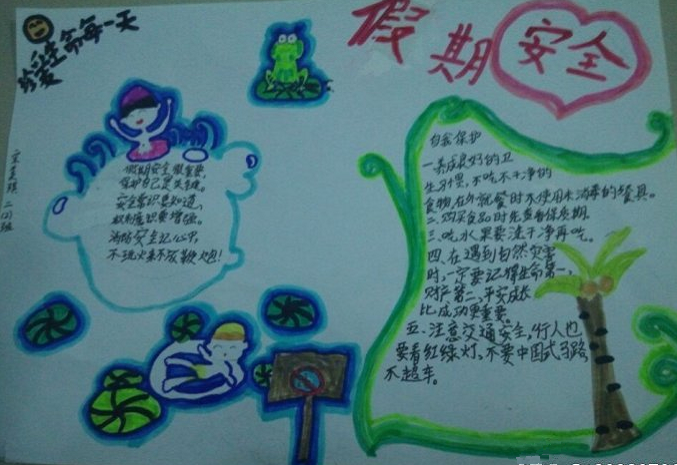 珍爱生命每一天
假期安全
二(2)班
假期安全很重要,
保护自己是关键。
安全常识要知道,
不玩火来不放鞭炮!
自我保护
一养成良好的卫
生习惯,不吃不干净的
食物,在外就餐时不使用未消毒的餐具。
二、购买食品时先查看保质期。
三、吃水果要洗干净再吃。
四、在遇到自然灾害
时,一定要记得生命第一,
财产第二,平安成长
比成功更重要。
五、注意交通安全,行人也
要看红绿灯,不要中国式马路,
不超车。